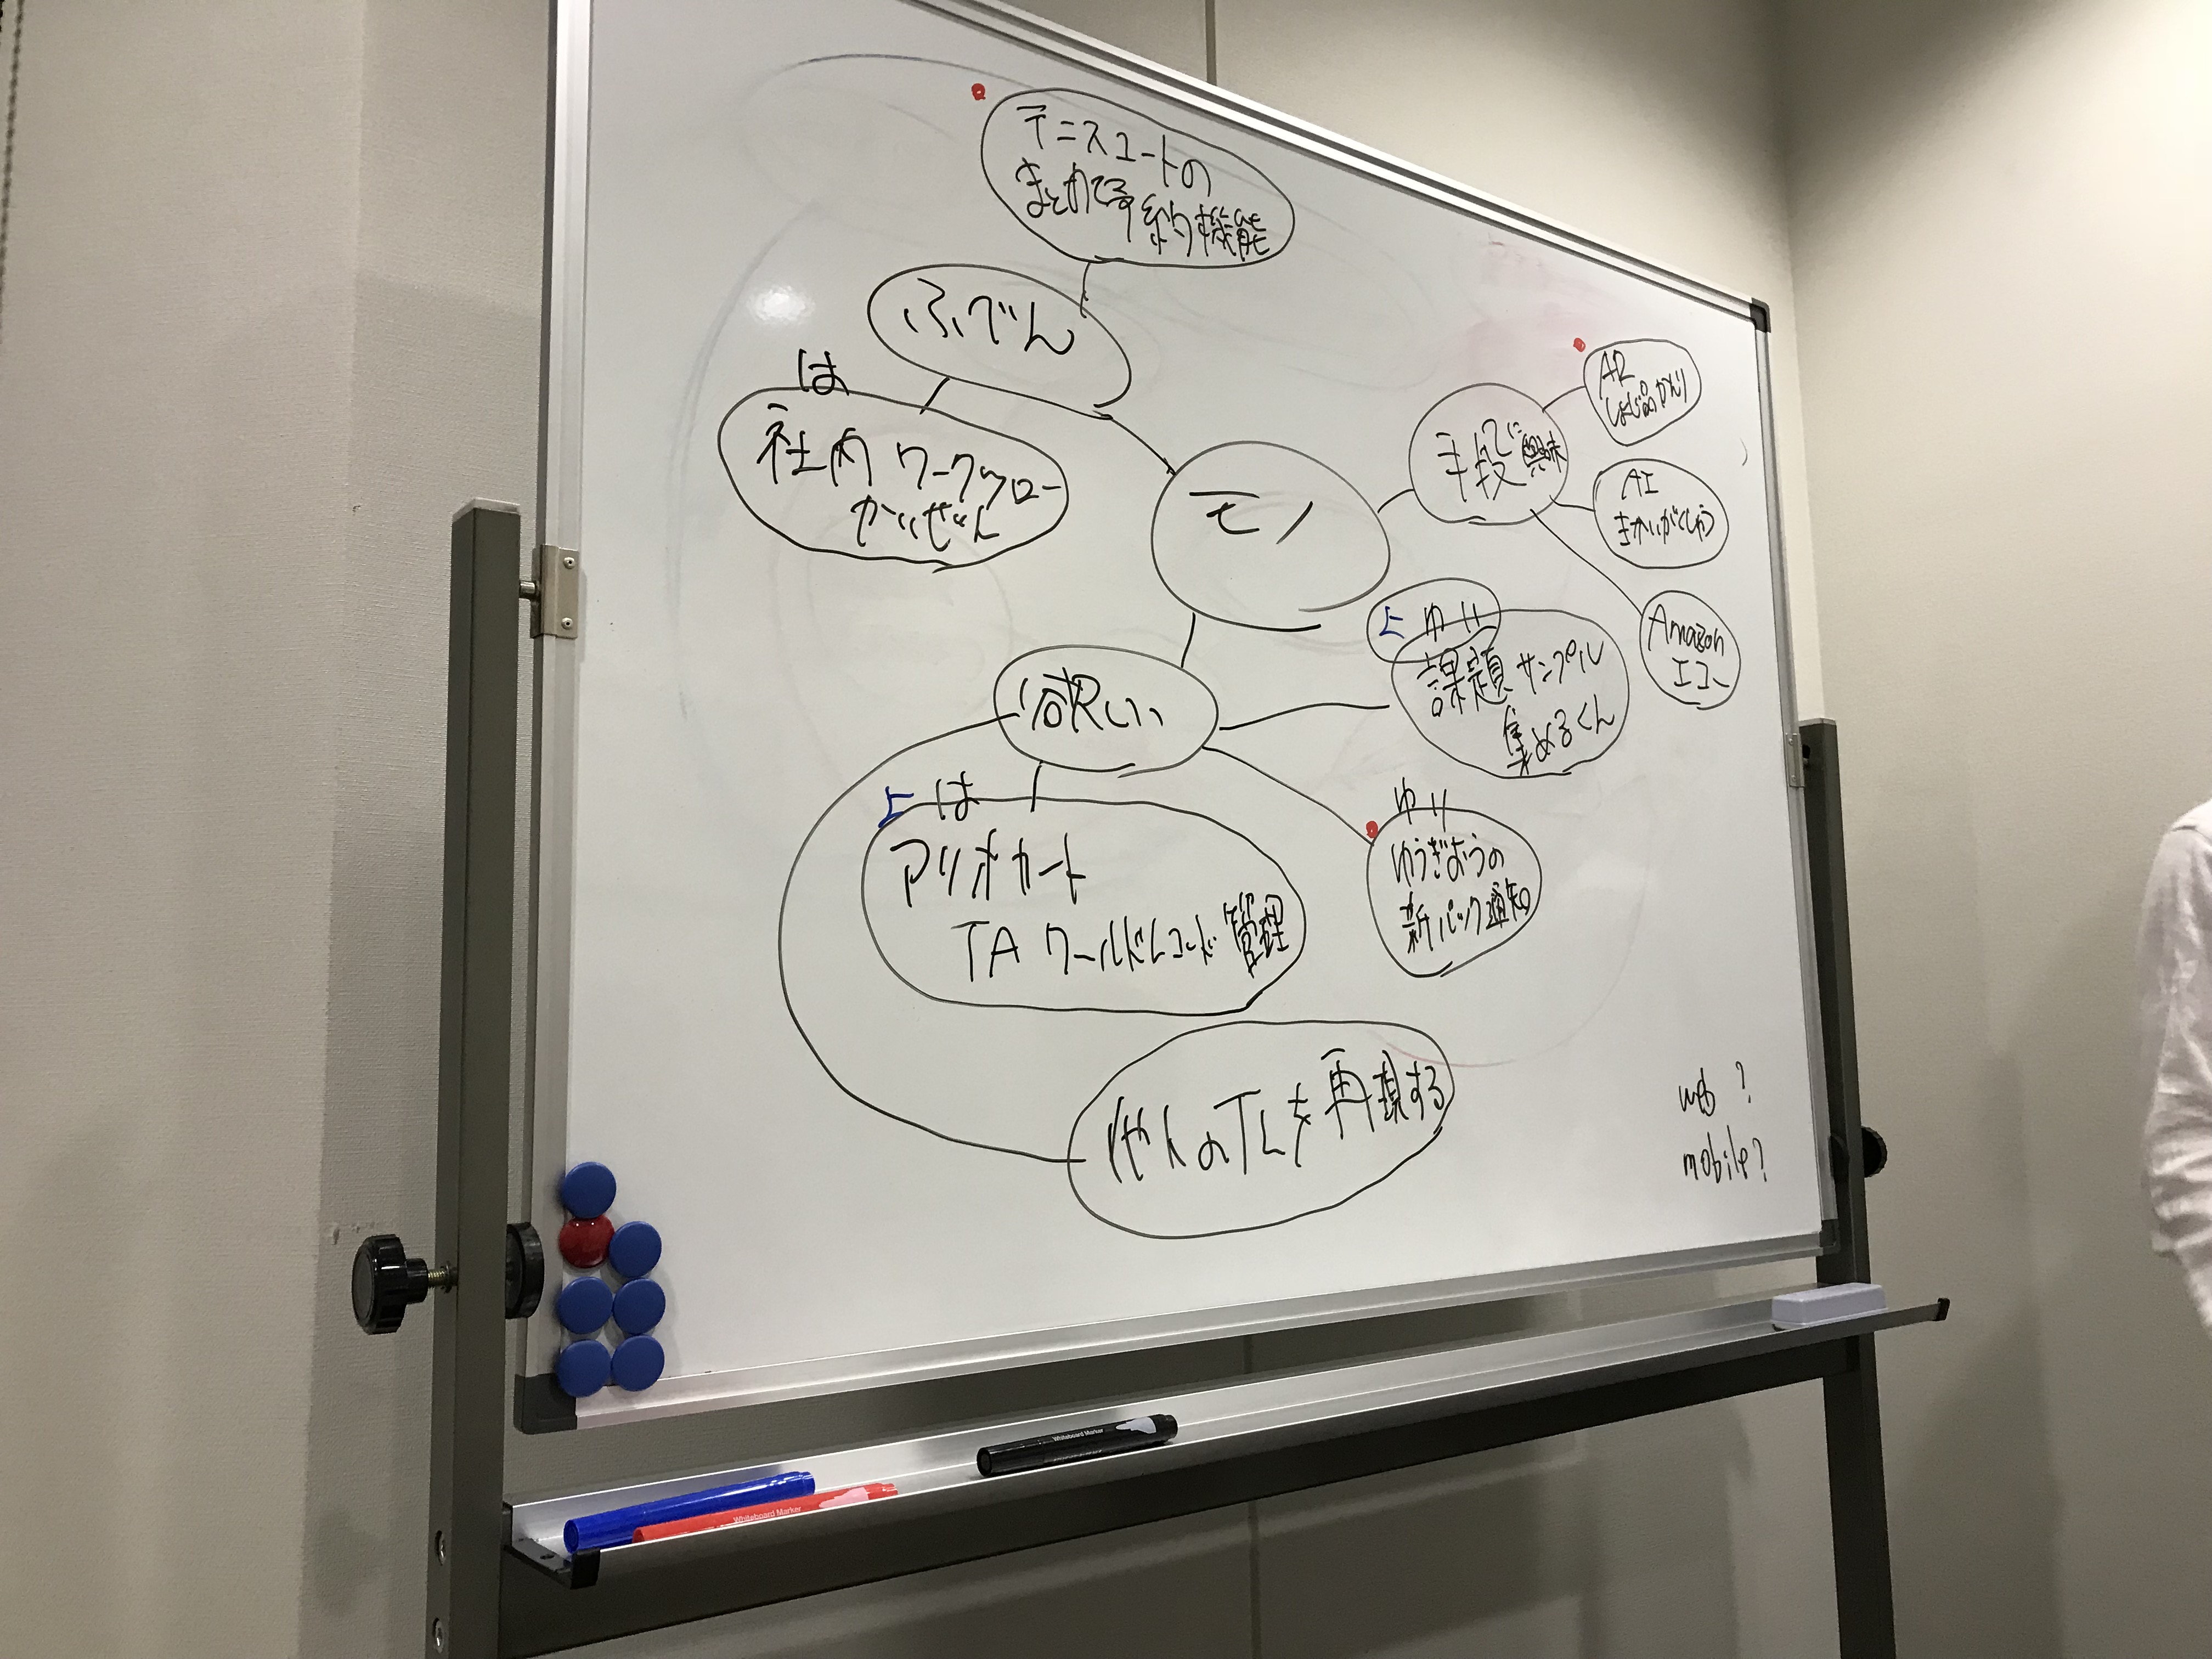 テニスコートの
まとめて予約機能
ふべん
は
社内ワークフロー
かいぜん
モノ
手段に興味
AR
しょじ品かんり
AI
きかいがくしゅう
Amazon
エコー
欲しい
よ ゆり
課題サンプル
集めるくん
よ は
マリオカート
TA ワールドレコード管理
ゆり
ゆうぎおうの
新パック通知
他人のTLを再現する
web ?
mobile?
Whiteboard Marker
Whiteboard Marker